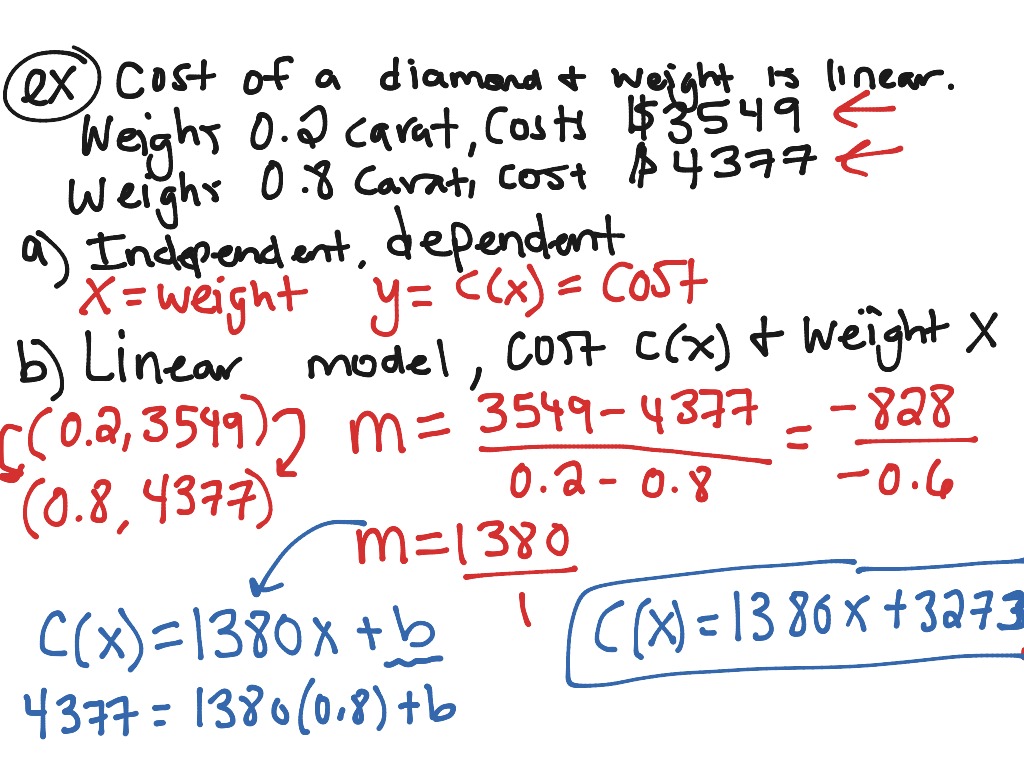 ex Cost of a diamond + weight is linear.
Weighs 0.2 carat, costs $3549 ←
Weighs 0.8 carat, cost $4377 ←
a) Independent, dependent
X = weight y = C(x) = Cost
b) Linear model, cost C(x) + weight X
(0.2, 3549) m = 3549 - 4377 / 0.2 - 0.8 = -828 / -0.6
(0.8, 4377)
m = 1380 / 1
C(x) = 1380x + b
C(x) = 1380x + 3273
4377 = 1380(0.8) + b